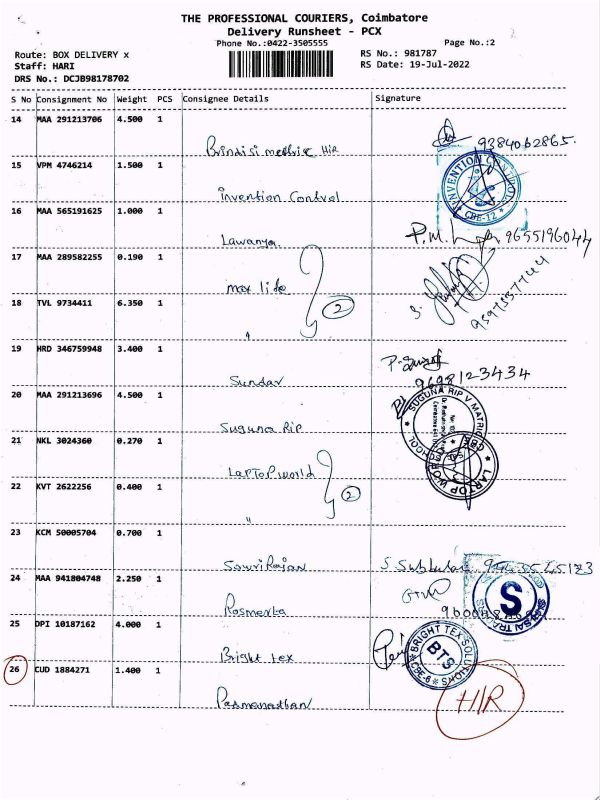 THE PROFESSIONAL COURIERS, Coimbatore
Delivery Runsheet - PCX
Phone No.:0422-3505555
Page No.:2
Route: BOX DELIVERY x
RS No.: 981787
Staff: HARI
RS Date: 19-Jul-2022
DRS No.: DCJB98178702
S No Consignment No Weight PCS Consignee Details Signature
14 MAA 291213706 4.500 1
9384062865.
15 VPM 4746214 1.500 1
INVENTION CONTROL
Invention Control
* CBE-12 *
16 MAA 565191625 1.000 1
Lawanya
P.M. 9655196044
17 MAA 289582255 0.190 1
max life
2
18 TVL 9734411 6.350 1
"
19 HRD 346759948 3.400 1
Sundar
9698123434
20 MAA 291213696 4.500 1
SUGUNA RIP V MATRIC
SCHOOL
Suguna Rip
21 NKL 3024360 0.270 1
Laptop world
LAPTOP WORLD
2
22 KVT 2622256 0.400 1
"
23 KCM 50005704 0.700 1
Sowri Rajan
24 MAA 941804748 2.250 1
S
Rosmerta
25 DPI 10187162 4.000 1
BRIGHT TEX SOLUTIONS
BTS
CBE-6
Bright tex
26 CUD 1884271 1.400 1
Padmanathan
HIR